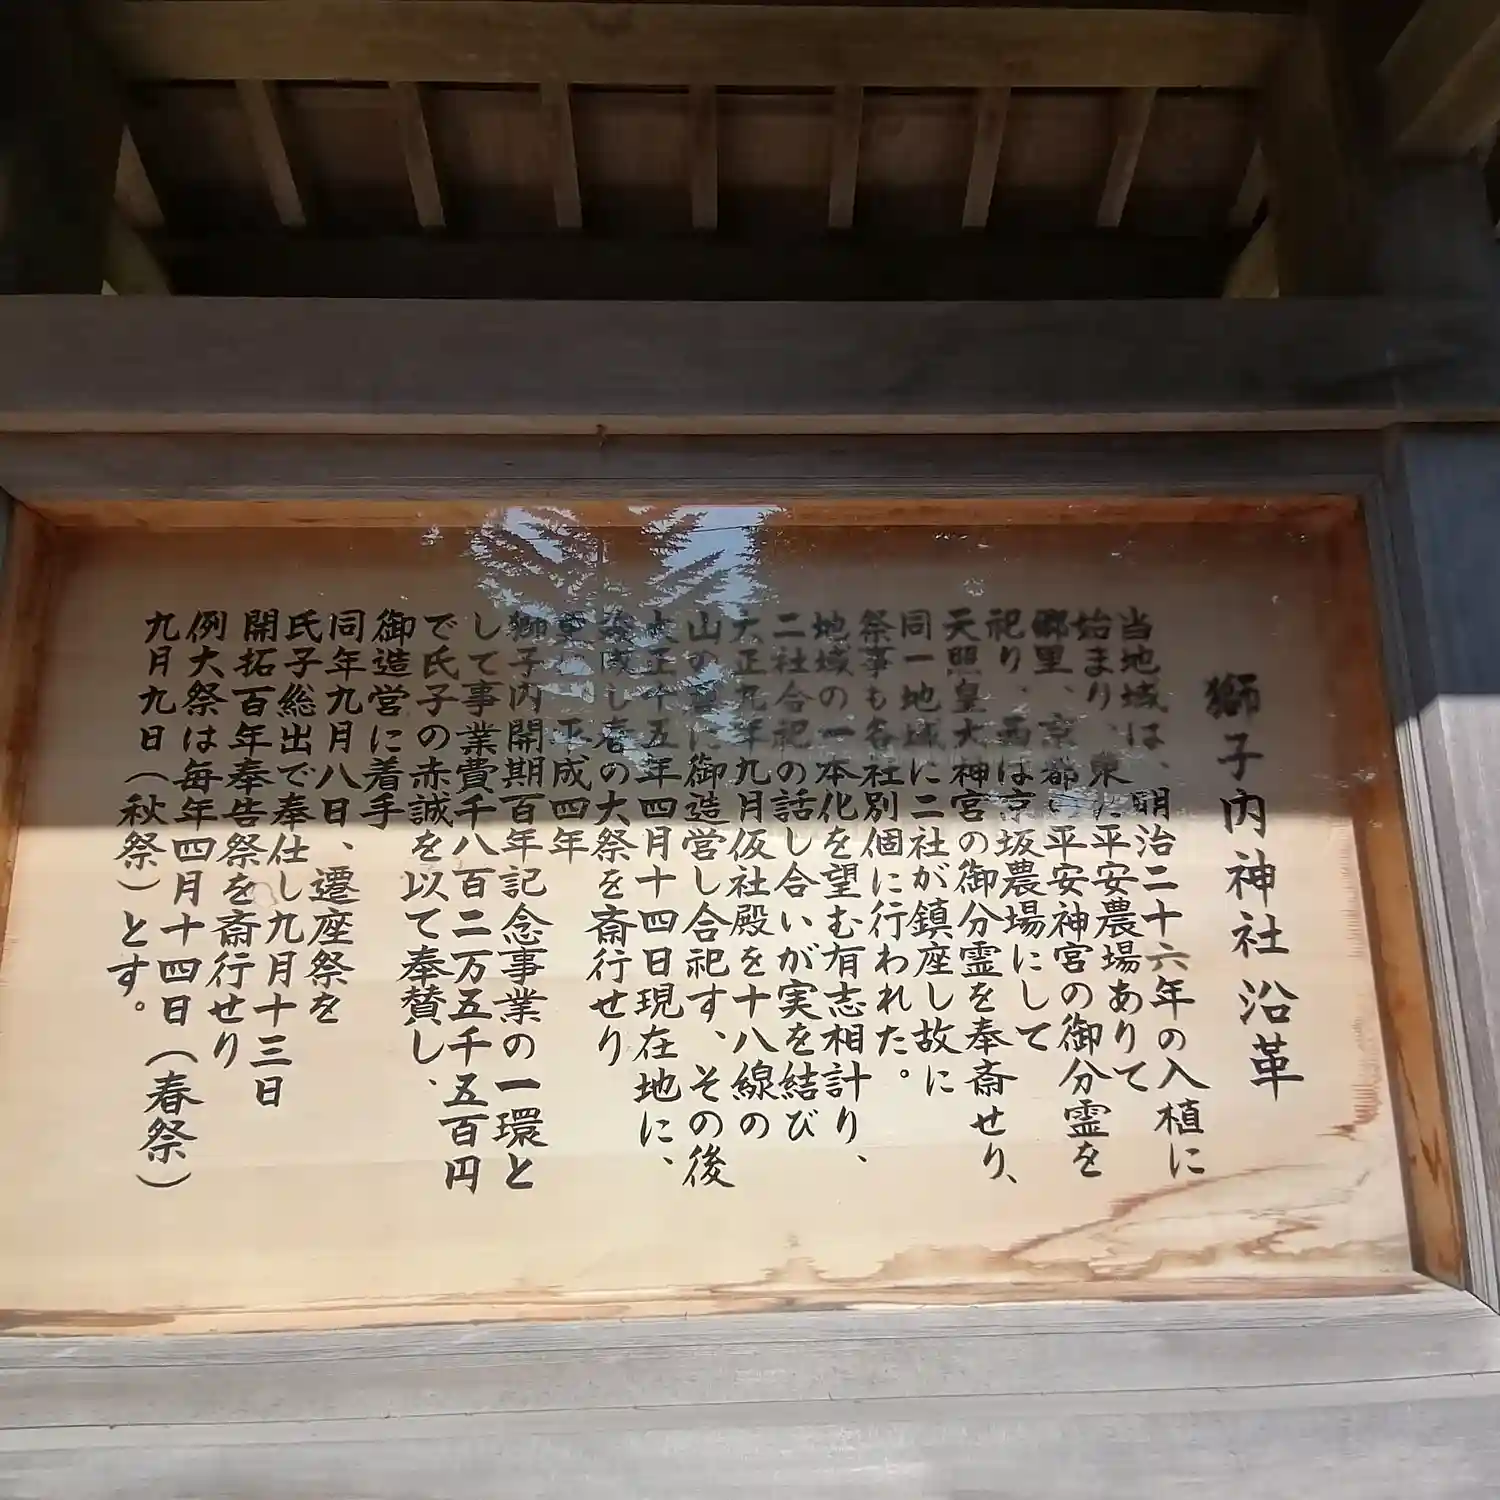 獅子内神社沿革
当地域は、明治二十六年の入植に
始まり、東に平安農場ありて
郷里、京都の平安神宮の御分霊を
祀り、西は京坂農場にして
天照皇大神宮の御分霊を奉斎せり、
同一地域に二社が鎮座し故に
祭事も各社別個に行われた。
地域の一本化を望む有志相計り、
二社合祀の話し合いが実を結び
大正九年九月仮社殿を十八線の
山の に御造営し合祀す、その後
大正十五年四月十四日現在地に、
し春の大祭を斎行せり
平成四年
獅子内開期百年記念事業の一環と
して事業費千八百二万五千五百円
で氏子の赤誠を以て奉賛し、
御造営に着手
同年九月八日、遷座祭を
氏子総出で奉仕し九月十三日
開拓百年奉告祭を斎行せり
例大祭は毎年四月十四日(春祭)
九月九日(秋祭)とす。